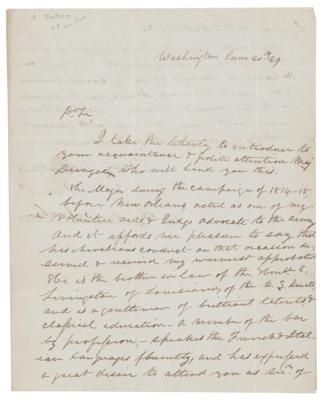 A. Jackson
Washington June 20th 29
Dr Sir
I take the liberty to introduce to
your acquaintance & polite attention Maj
Davezac, who will hand you this.
The Major during the campaign of 1814-15
before New Orleans acted as one of my
Volunteer aids & Judge advocate to the army
and it affords me pleasure to say that
his chivalrous conduct on that occasion de-
served & received my warmest approbation
He is the brother in law of the Honbl. E.
Livingston of Louisiana, of the U. S. Senate
and is a gentleman of brilliant talents, &
classical education - a member of the bar
by profession, - speaks the French & Ital-
ian languages fluently, and has expressed
a great desire to attend you as Secry. of